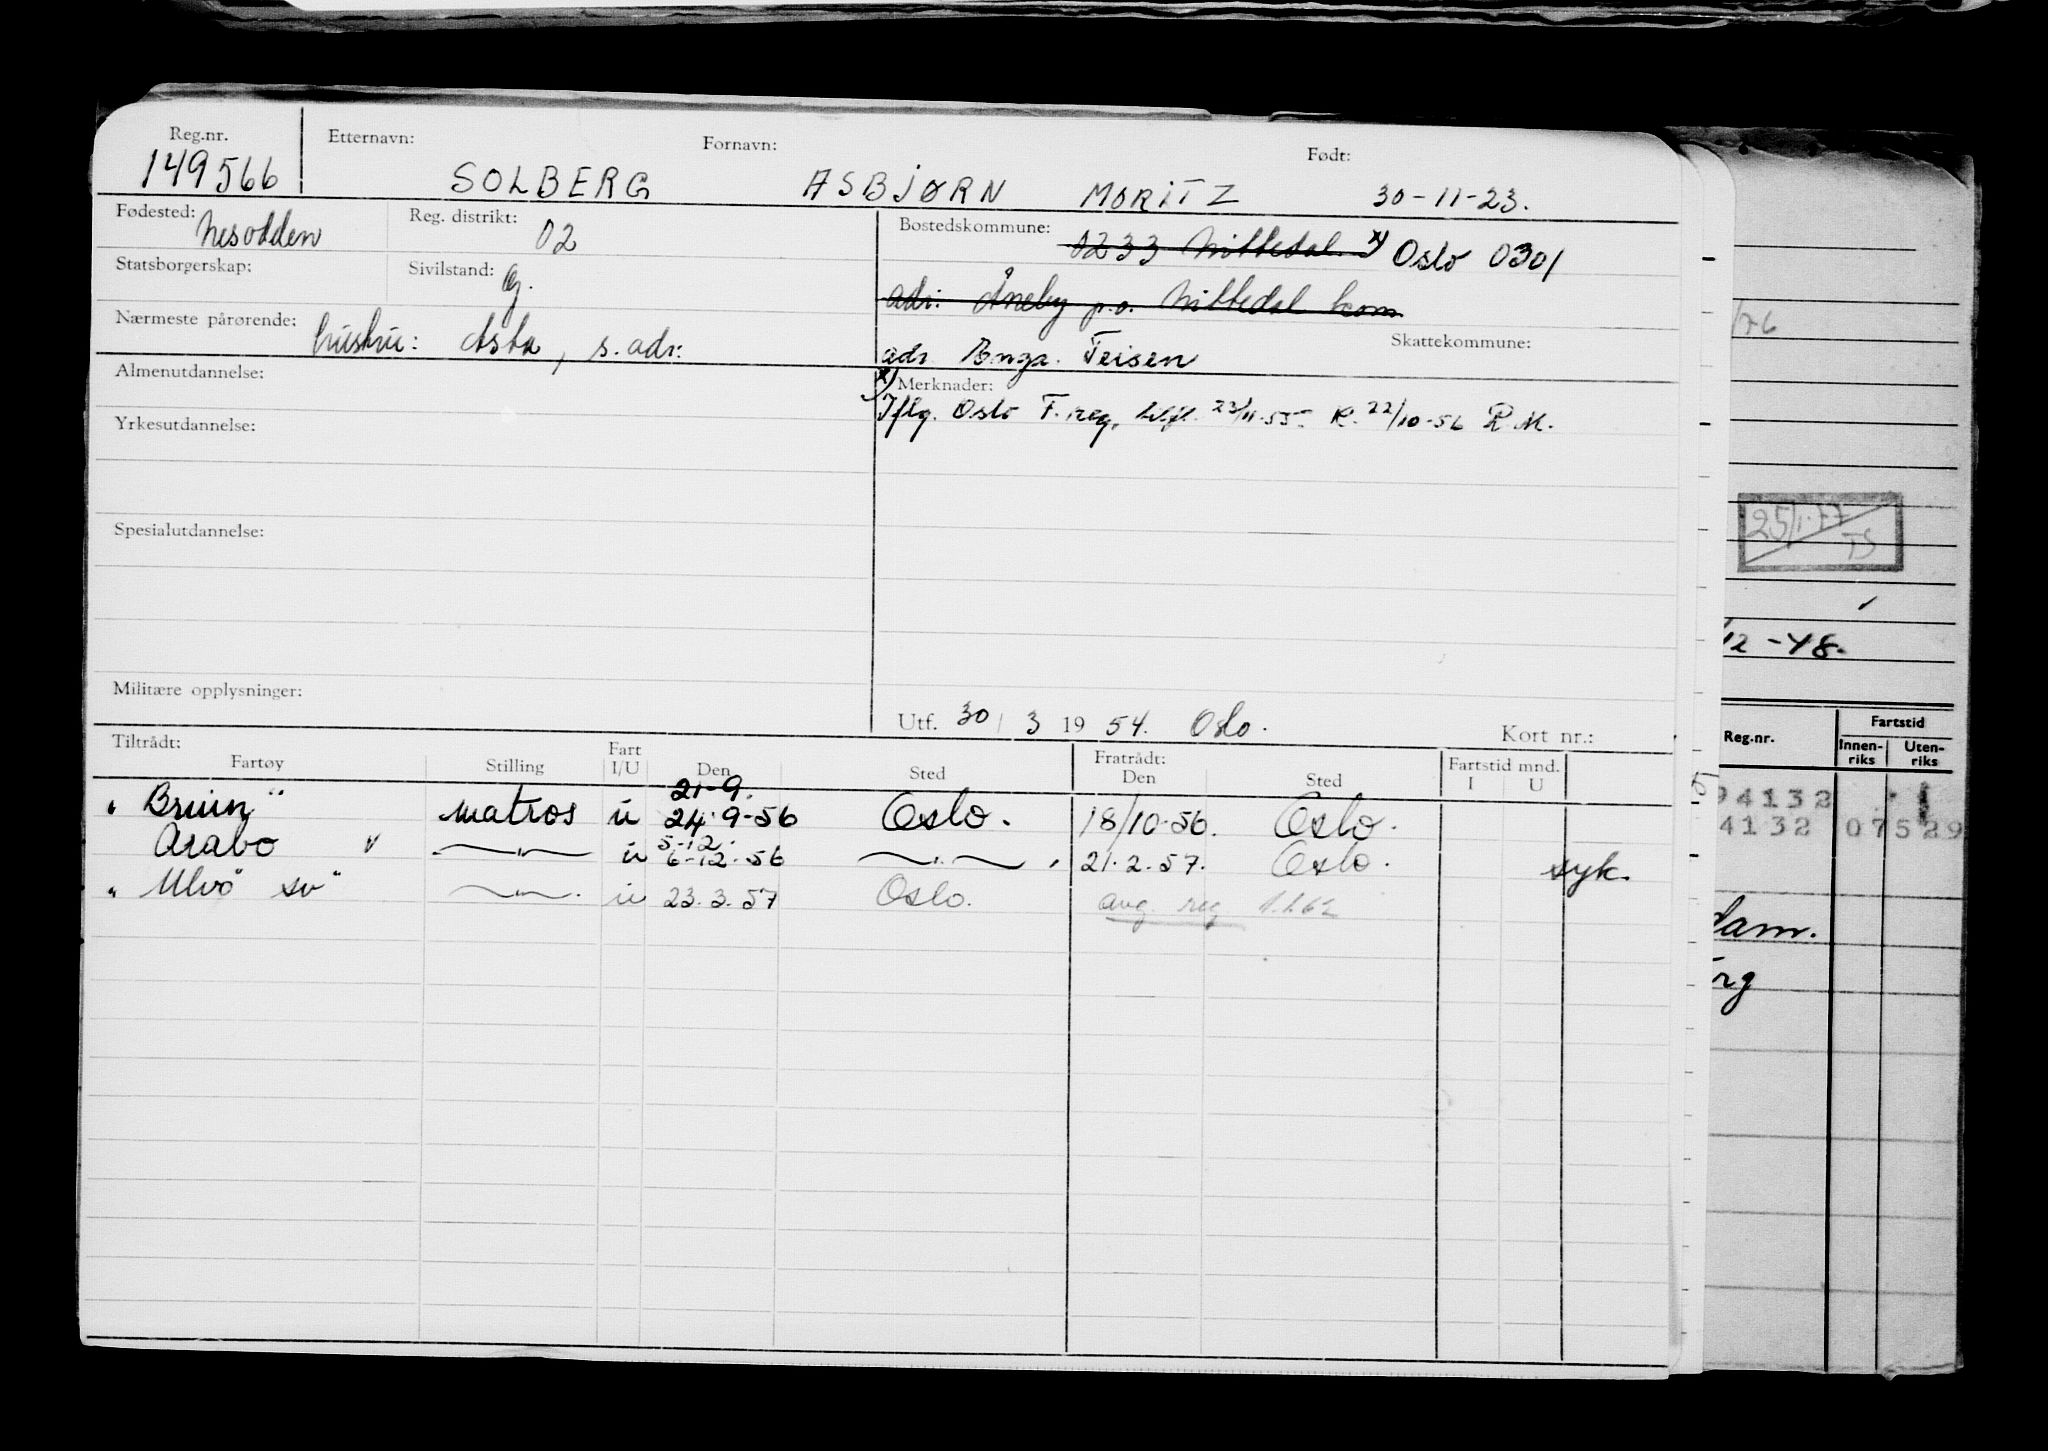 Reg.nr. Etternavn: Fornavn: Født:
149566 SOLBERG ASBJØRN MORITZ 30-11-23.
Fødested: Nesodden Reg. distrikt: 02 Bostedskommune: 0233 Nittedal x) Oslo 0301
Statsborgerskap: Sivilstand: g. adr: Åneby p.o. Nittedal kom
Nærmeste pårørende: hustru: Asta, s. adr: adr Teisen Skattekommune:
Almenutdannelse: x) Merknader:
Iflg. Oslo F.reg. 23/11-55 K. 22/10-56 R.M.
Yrkesutdannelse:
Spesialutdannelse:
Militære opplysninger:
Utf. 30/3 1954. Oslo. Kort nr.:
Tiltrådt: Fart Fratrådt: Fartstid mnd.
Fartøy Stilling I/U Den Sted Den Sted I U
21-9.
" Bruin" matros u 24-9-56 Oslo. 18/10-56. Oslo.
5-12.
Arabo " —"— u 6-12-56 —"— 21-2-57. Oslo. syk.
" Ulvö sv" —"— u 23.3.57 Oslo. avg. reg 1.1.62
/76
25/1-77
TS
/12-48.
Reg.nr. Fartstid
Innen-riks Uten-riks
94132
4132 07529
dam.
rg